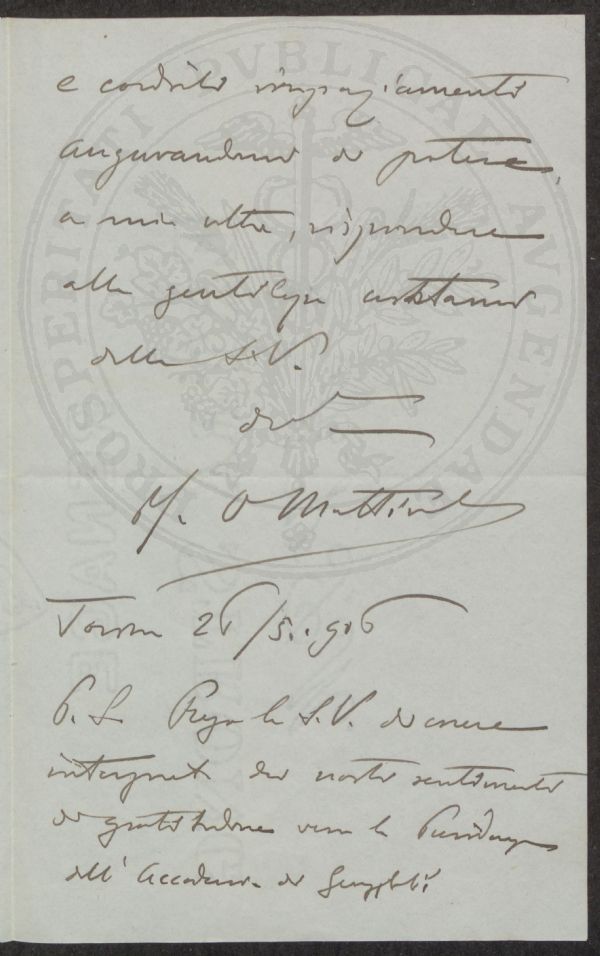 e cordiali ringraziamenti
augurandomi di potere,
a mia volta, rispondere
alla gentilezza
della S.V.
dev
O Mattirolo
Torino 26/5.906
P.S. Prego la S.V. di essere
interprete dei nostri sentimenti
di gratitudine verso la Presidenza
dell'Accademia dei Georgofili
PROSPERITATI PVBLICAE AVGENDAE